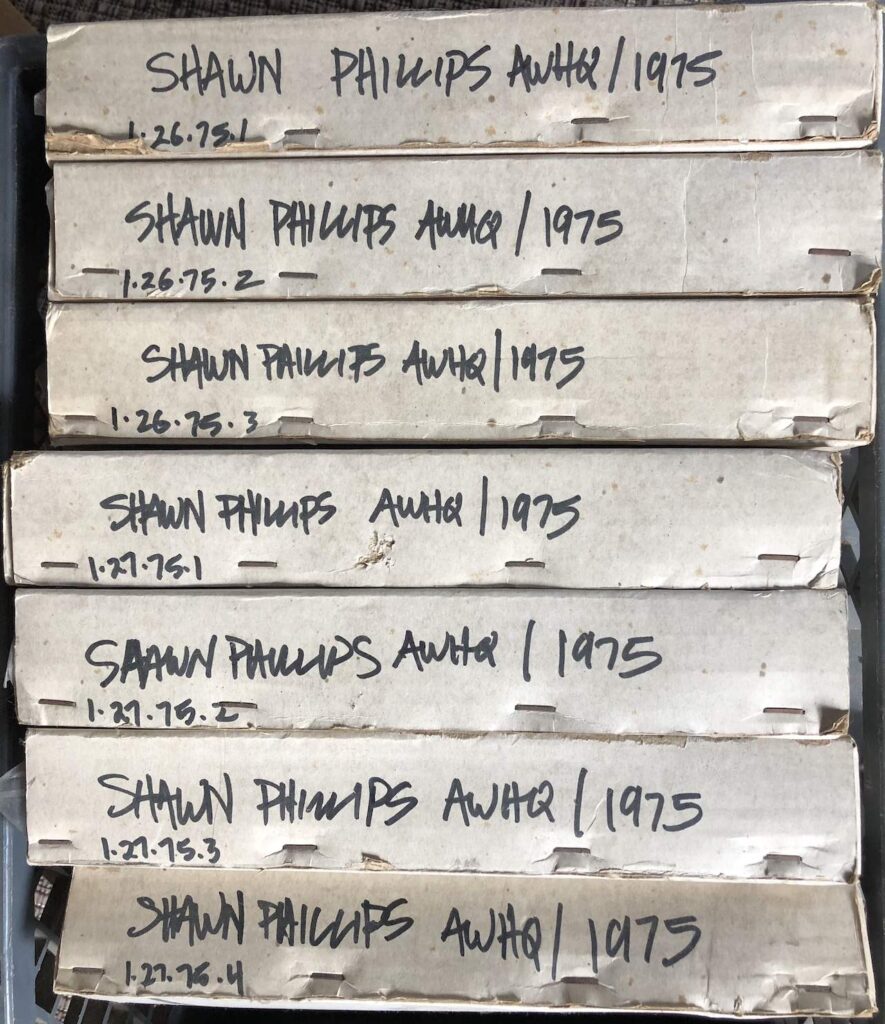 SHAWN PHILLIPS AWHQ/1975
1.26.75.1
SHAWN PHILLIPS AWHQ/1975
1.26.75.2
SHAWN PHILLIPS AWHQ/1975
1.26.75.3
SHAWN PHILLIPS AWHQ/1975
1.27.75.1
SHAWN PHILLIPS AWHQ/1975
1.27.75.2
SHAWN PHILLIPS AWHQ/1975
1.27.75.3
SHAWN PHILLIPS AWHQ/1975
1.27.75.4